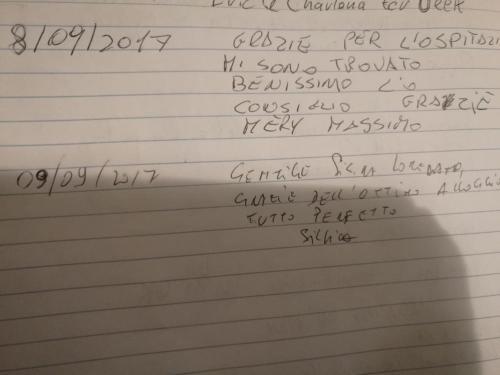 8/09/2017 GRAZIE PER L'OSPITAZI
MI SONO TROVATO
BENISSIMO L'O
CONSIGLIO GRAZIE
MERY MASSIMO
09/09/2017 GENTILE SIG.RA
GRAZIE DELL'OTTIMO ALLOGGIO
TUTTO PERFETTO
Silvia